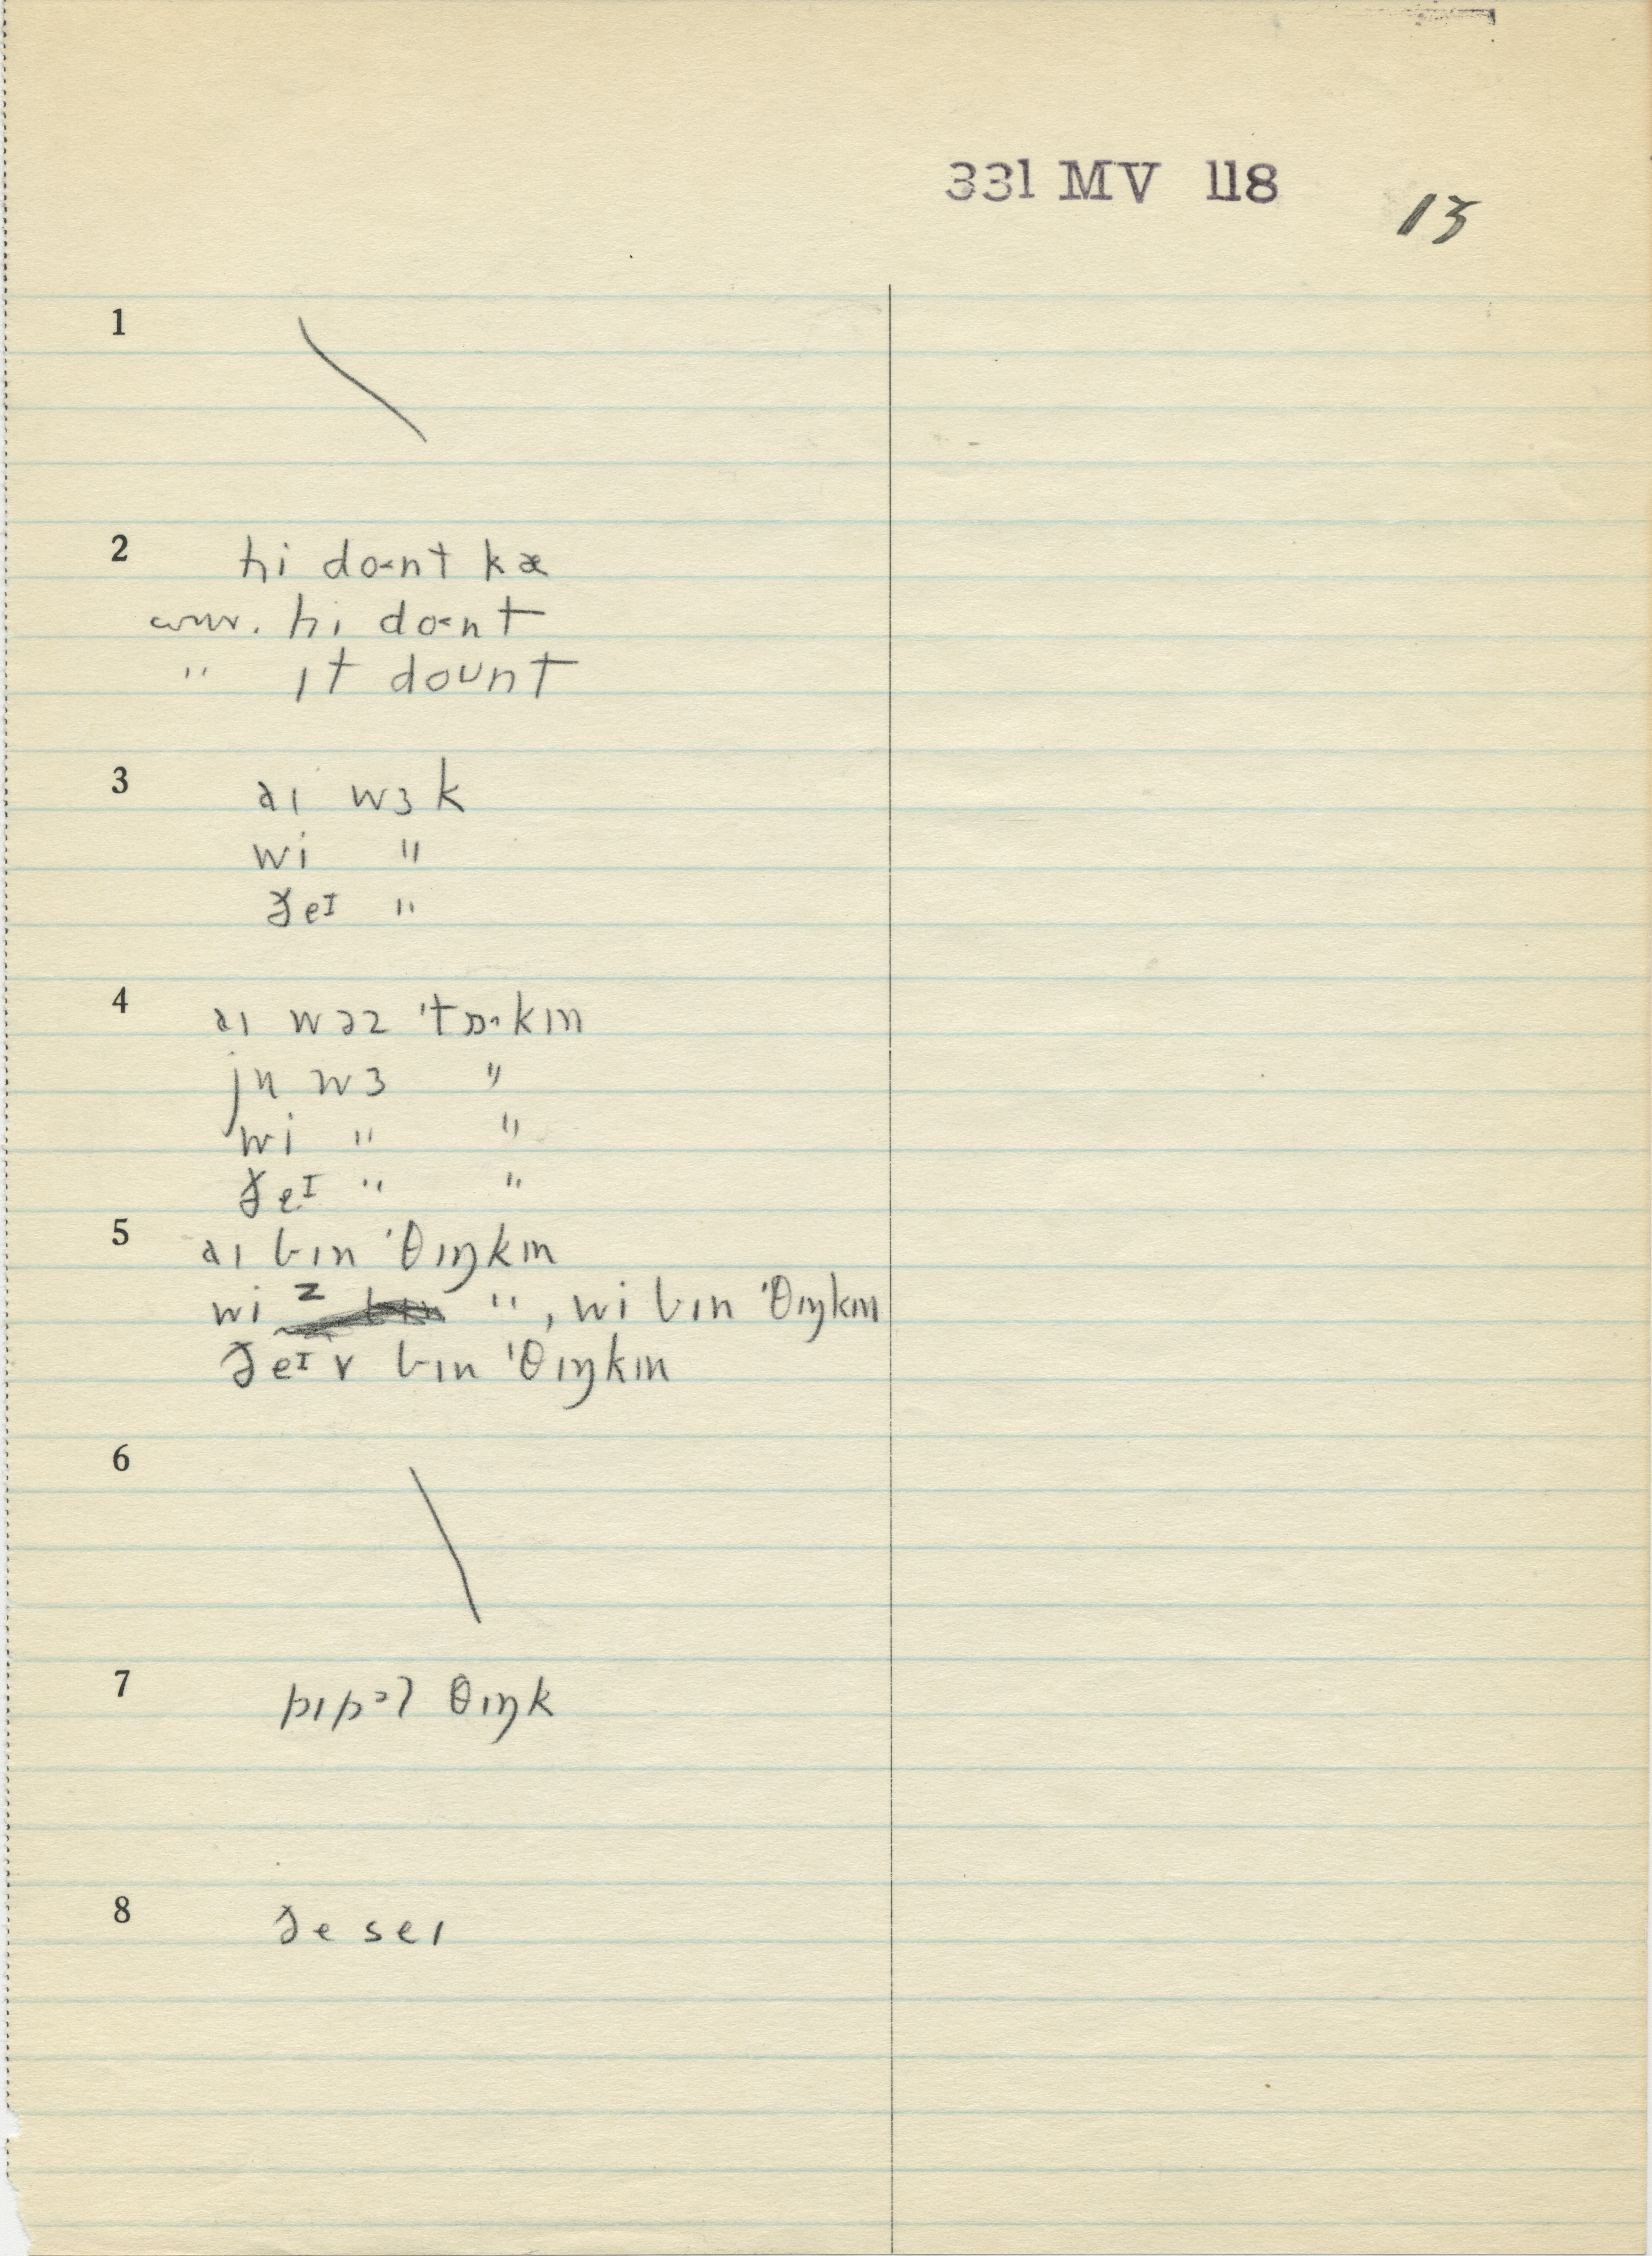 331 MV 118
13
1
2 hi do˂nt kæ
conv. hi do˂nt
" ɪt doᴜnt
3 aɪ wɜk
wi "
ðeᴵ "
4 aɪ wəz ˈtɒ·kɪn
ju wɜ "
wi " "
ðeᴵ " "
5 aɪ bɪn ˈθɪŋkɪn
wi z ", wi bɪn ˈθɪŋkɪn
ðeᴵ v bɪn ˈθɪŋkɪn
6
7 pipᵊl θɪŋk
8 ðe seɪ